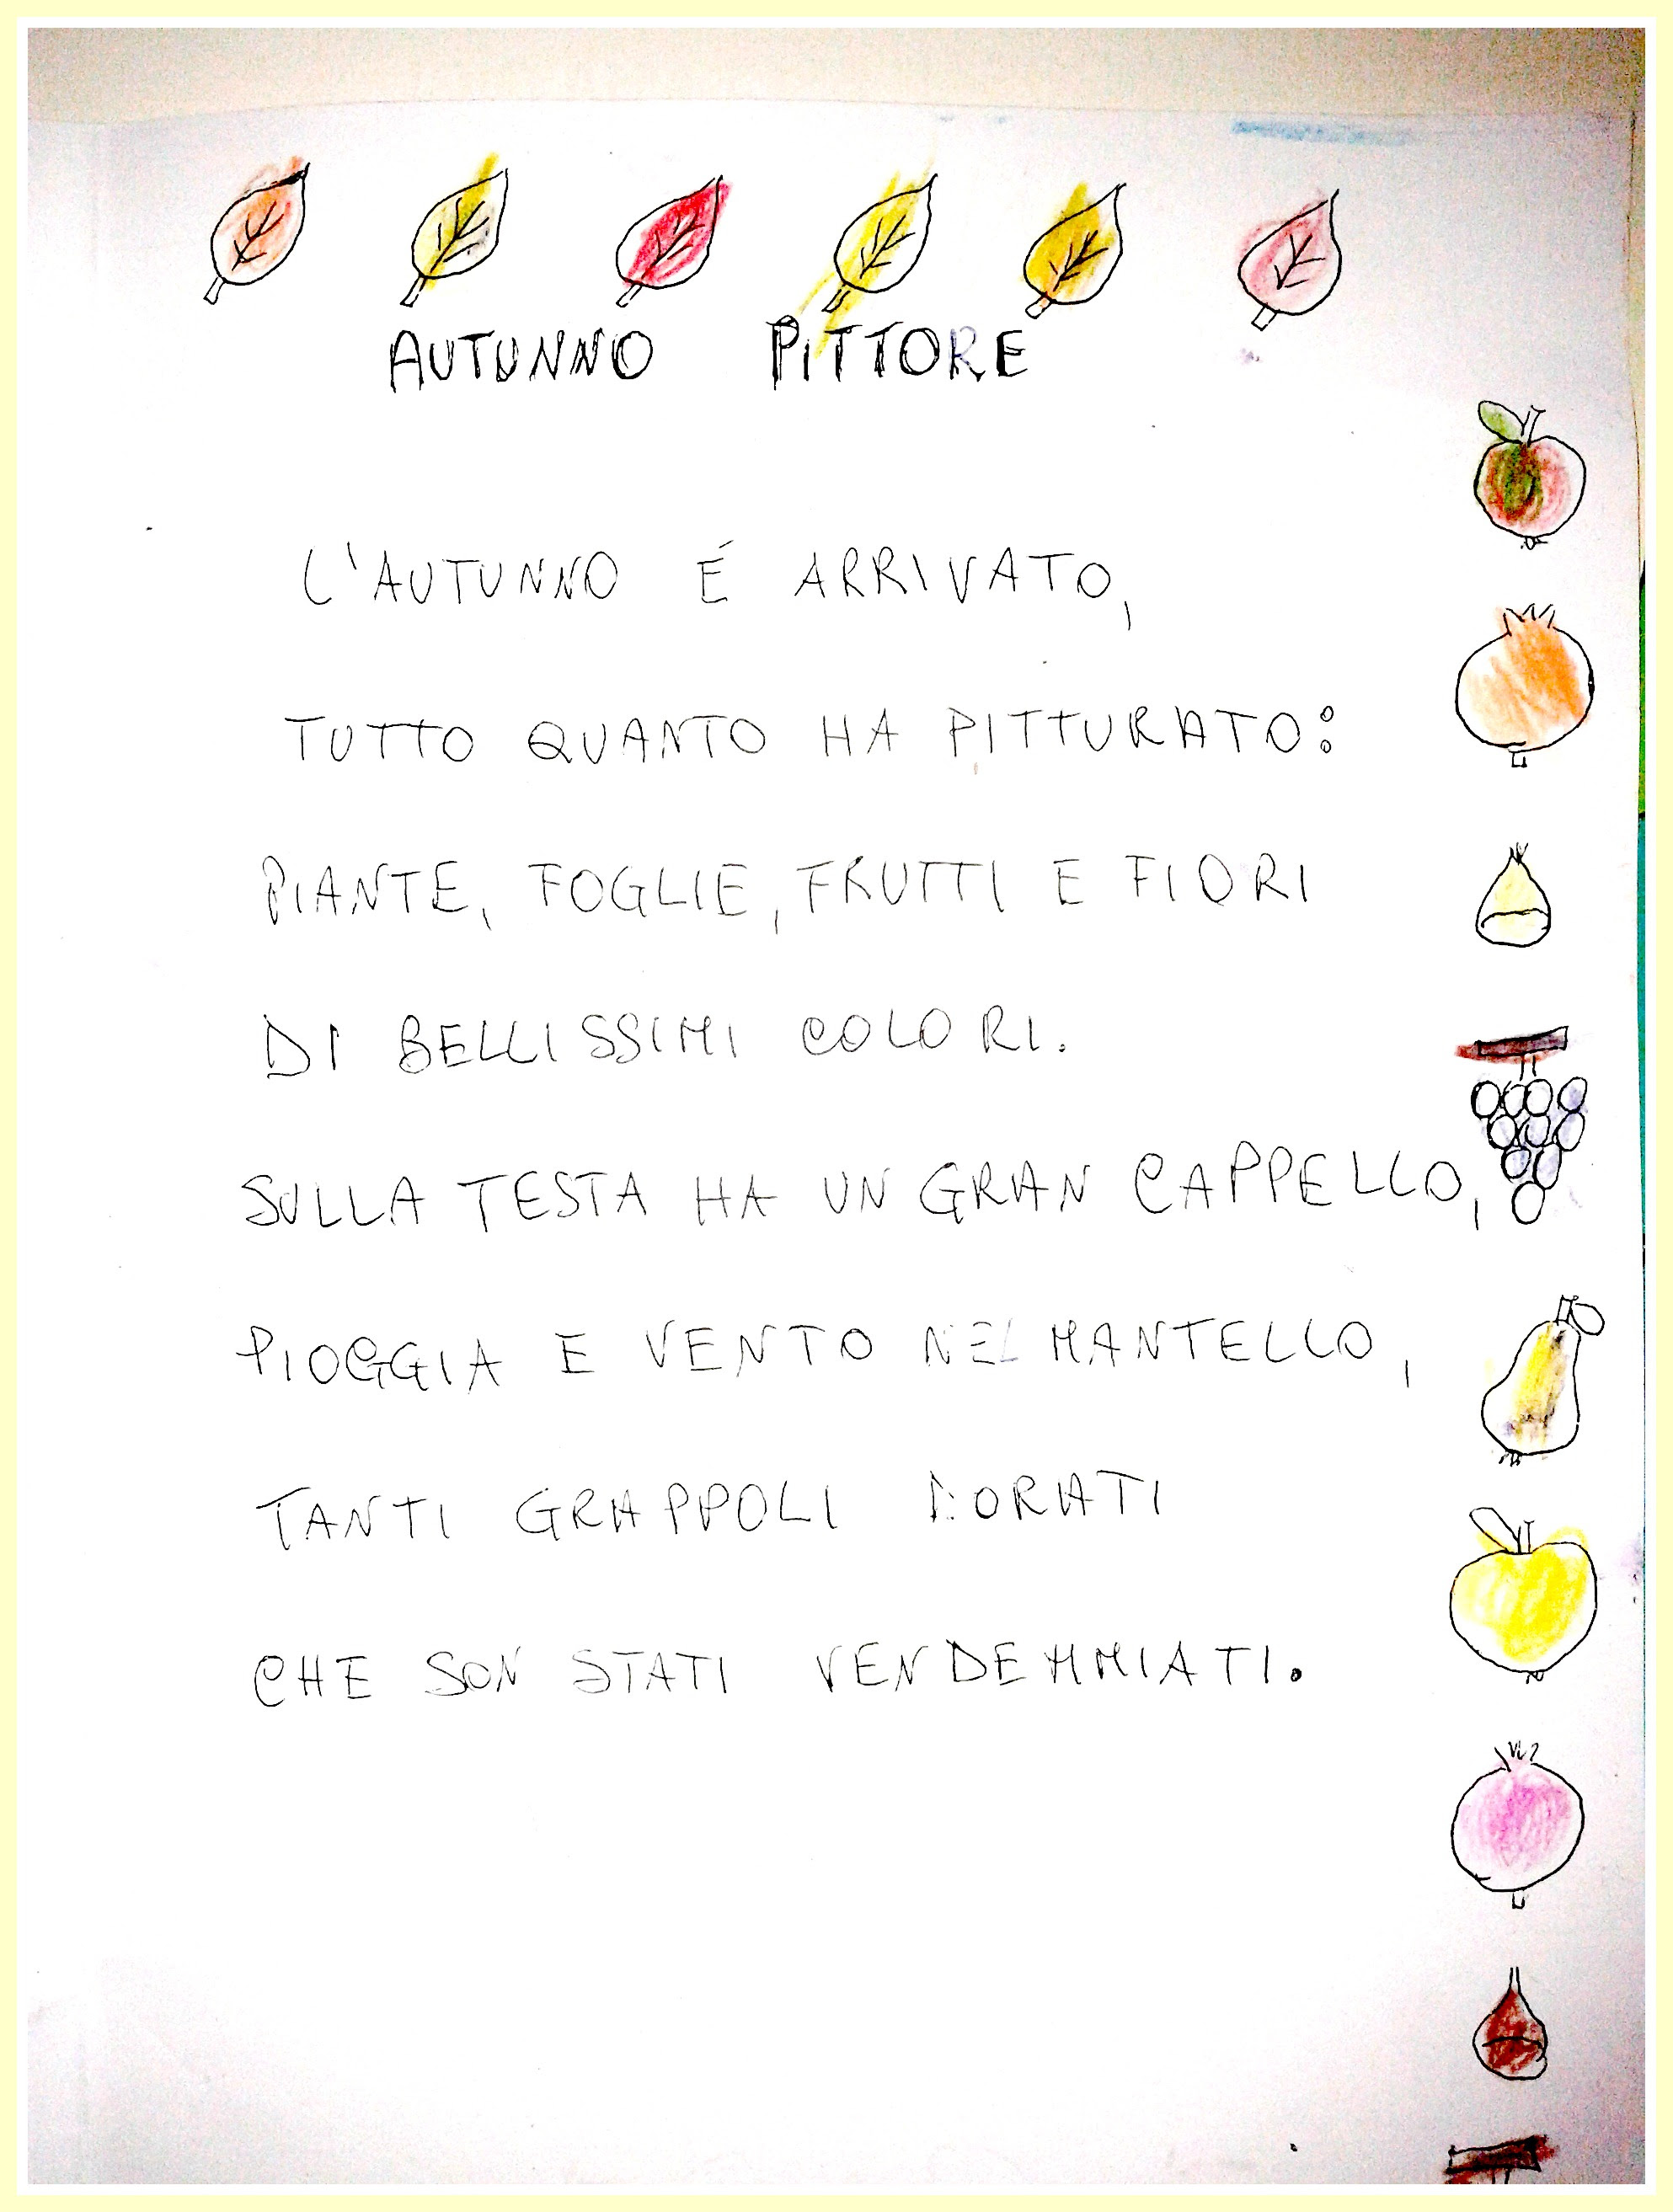 AUTUNNO PITTORE
L'AUTUNNO É ARRIVATO,
TUTTO QUANTO HA PITTURATO:
PIANTE, FOGLIE, FRUTTI E FIORI
DI BELLISSIMI COLORI.
SULLA TESTA HA UN GRAN CAPPELLO,
PIOGGIA E VENTO NEL MANTELLO,
TANTI GRAPPOLI DORATI
CHE SON STATI VENDEMMIATI.